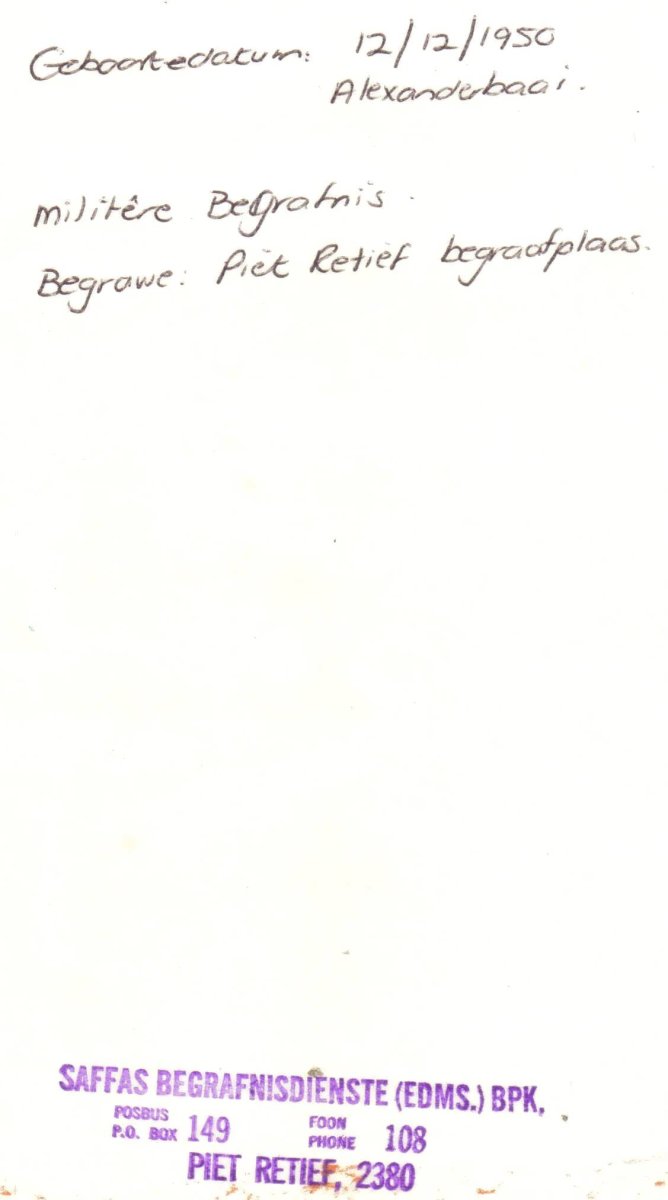 Geboortedatum: 12/12/1950
Alexanderbaai.
militêre Begrafnis.
Begrawe: Piet Retief begraafplaas.
SAFFAS BEGRAFNISDIENSTE (EDMS.) BPK.
POSBUS
P.O. BOX 149
FOON
PHONE 108
PIET RETIEF, 2380